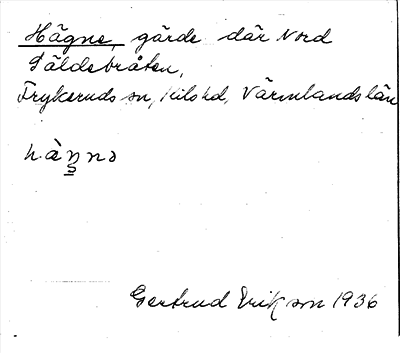 Hägne, gärde där Nord
Säldebråten,
Frykeruds sn, Kils hd, Värmlands län
hànnə
Gertrud Erikson 1936